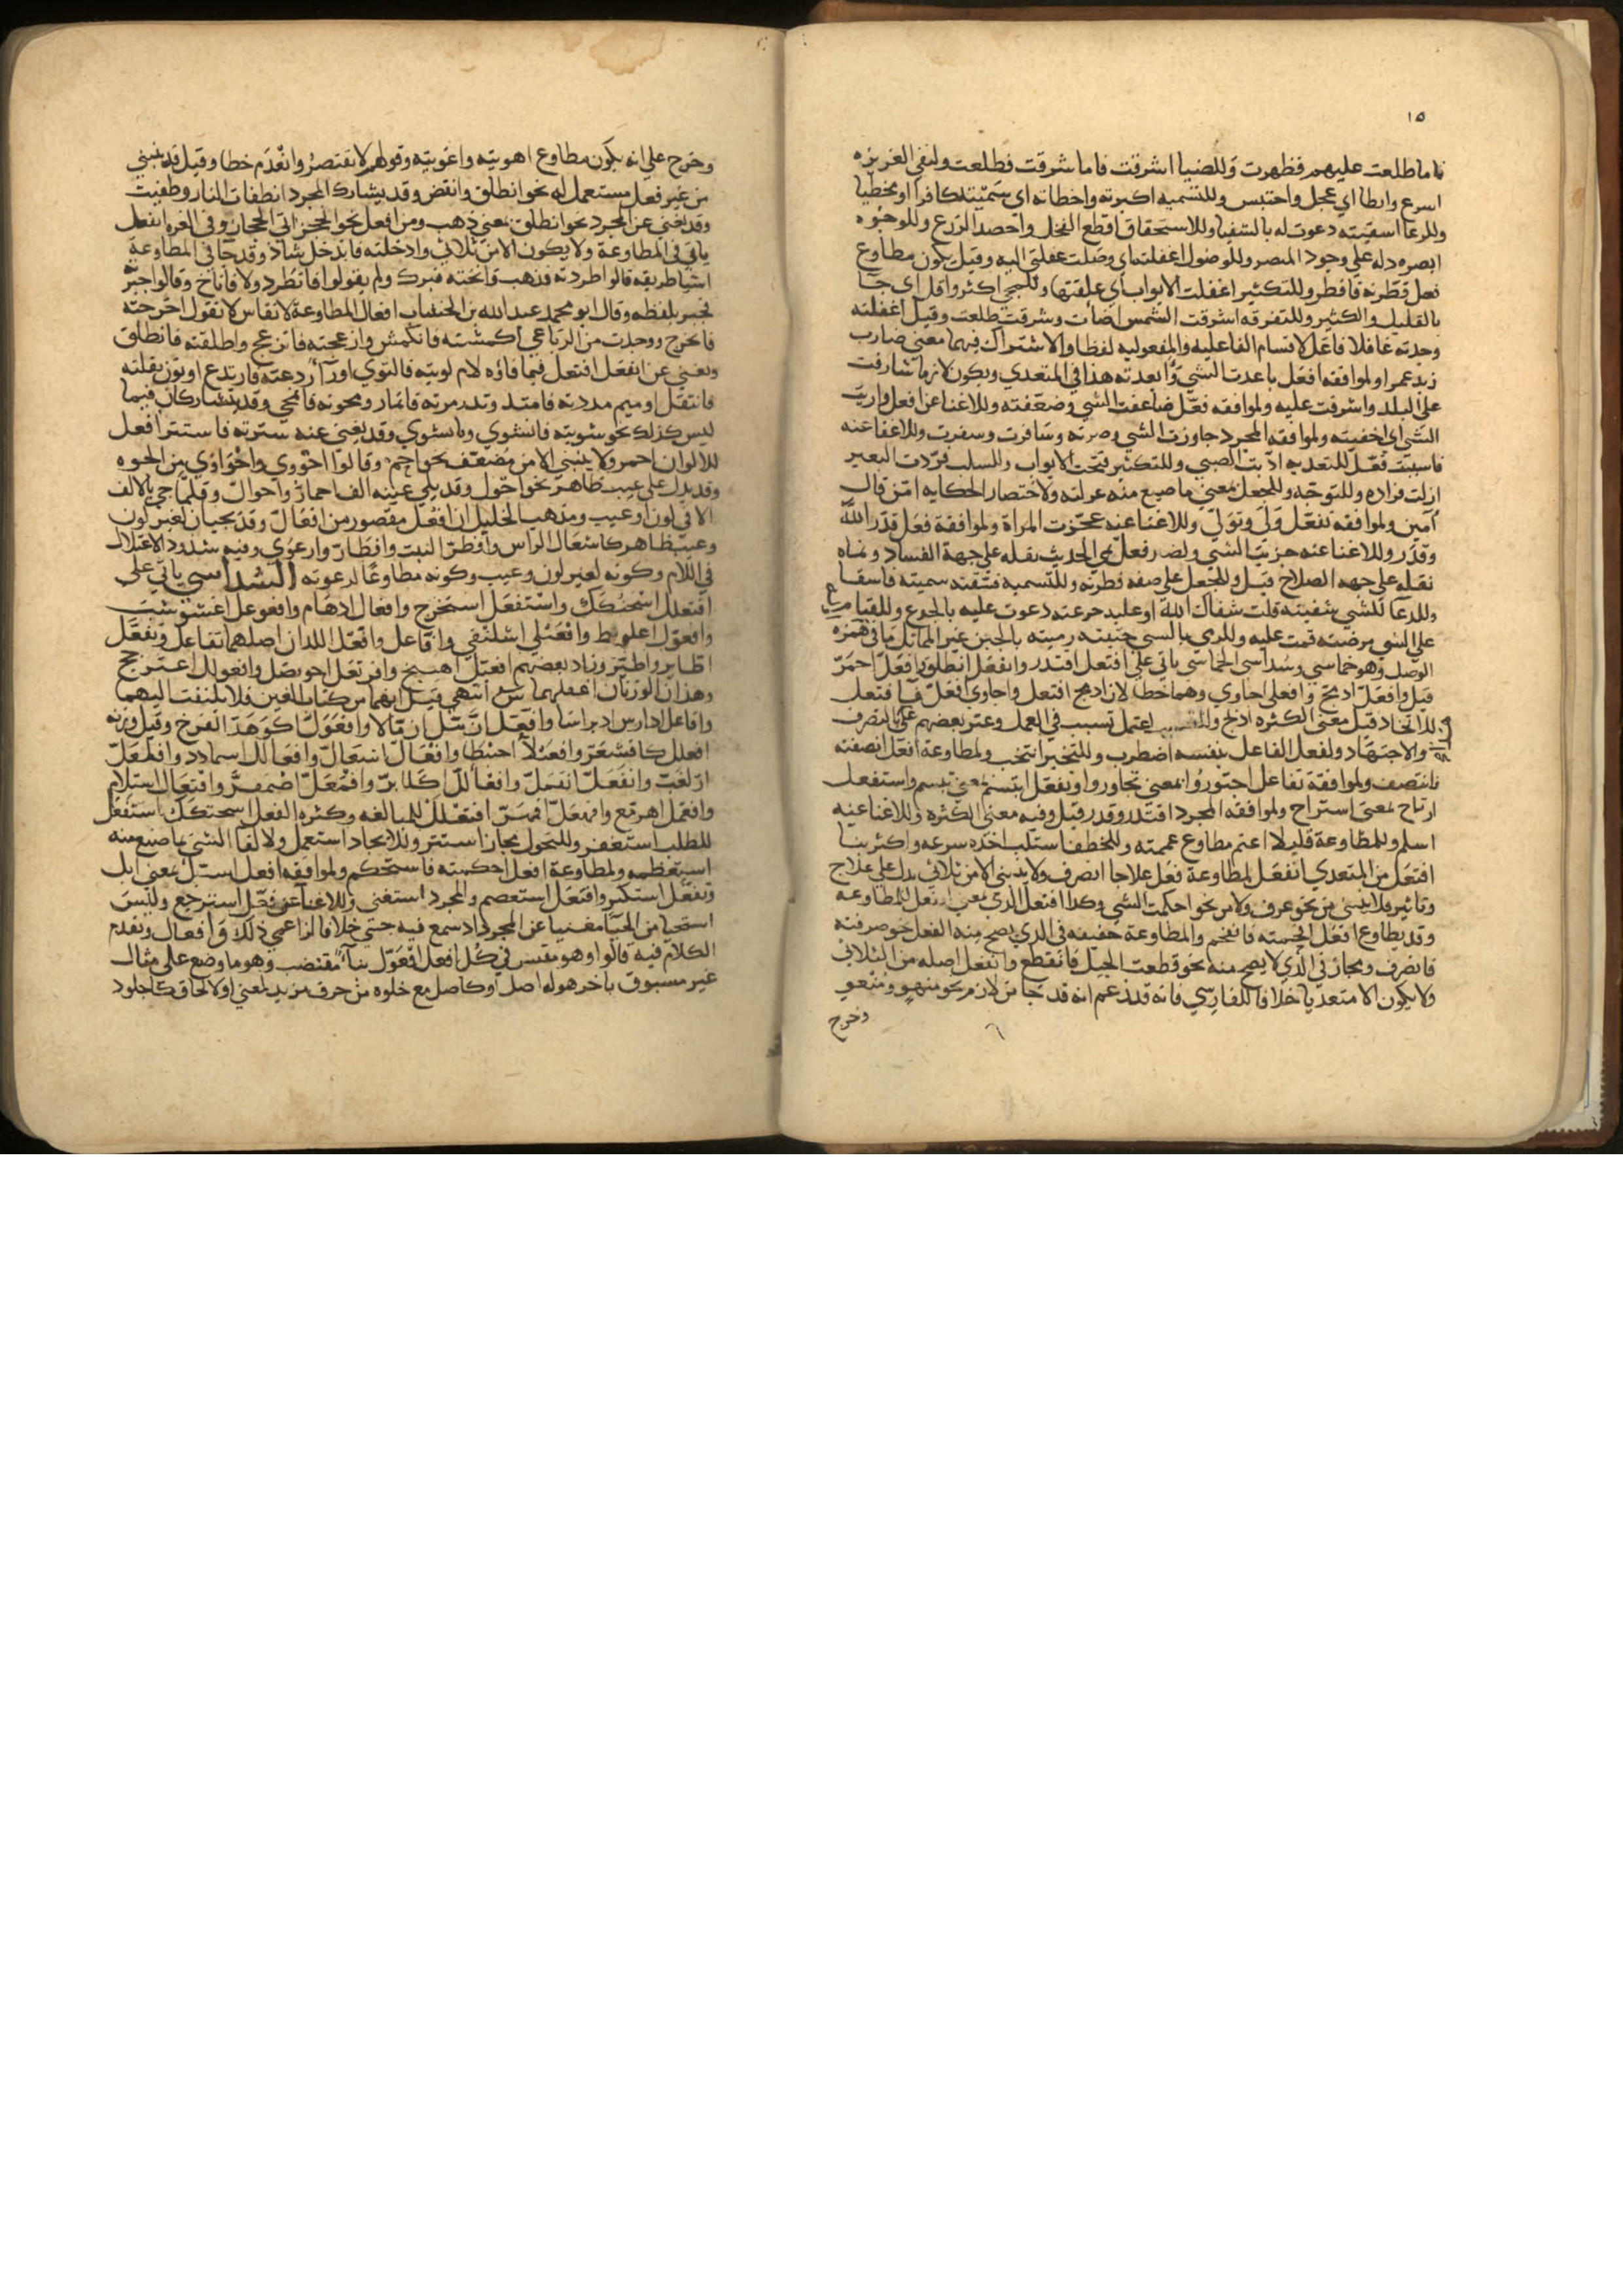 ١٥
فاما طلعت عليهم فظهرت وللضيا اشرقت فاما شرقت فطلعت ولنفي الغريزه
اسرع وابطا اي عجل واحتبس وللتسميه اكبرته واخطاته اي سميته كافرا او مخطيا
وللدعا اسقيته دعوت له بالسقيا وللاستحقاق اقطع النخل واحصد الزرع وللوجوه
ابصره دله على وجود المبصر وللوصول اغفلته اي وصلت غفلتي اليه وقيل يكون مطاوع
فعل فطرته فافطر وللتكثير اغفلت الابواب اي علقتها وللمجي اكثر واقل اي جا
بالقليل والكثير وللتفرقه اشرقت الشمس اضات وشرقت طلعت وقيل اغفلته
وجدته غافلا فاعل لاقسام الفاعليه والمفعوليه لفظا والاشتراك فيهما معنى ضارب
زيد عمرا ولموافقه افعل باعدت الشي وابعدته هذا في المتعدي ويكون لازما شارفت
على البلد واشرفت عليه ولموافقه فعل ضاعفت الشي وضعفته وللاغنا عن افعل واريت
الشي اي اخفيته ولموافقه المجرد جاوزت الشي وجزته وسافرت وسفرت وللاغنا عنه
قاسيت فعل للتعديه ادبت الصبي وللتكثير فتحت الابواب وللسلب قردت البعير
ازلت قراده وللتوجه وللجعل بمعنى ما صيغ منه عدلته ولاختصار الحكايه امن قال
آمين ولموافقة تفعل ولى وتولى وللاغنا عنه عجزت المراة ولموافقة فعل قدر الله
وقدر وللاغنا عنه جربت الشي ولضد فعل نمى الحديث نقله على جهة الفساد ونماه
نقله على جهه الصلاح قيل وللجعل على صفه فطرته وللتسميه فسقته سميته فاسقا
وللدعا للشي سقيته قلت سقاك الله او عليه جدعته دعوت عليه بالجدع وللقيام
على الشي مرضته قمت عليه وللرمي بالشي جبنته رميته بالجبن غير المماثل ما في همزه
الوصل وهو خماسي وسداسي الخماسي ياتي على افتعل اقتدر وانفعل انطلق وافعل احمر
قيل وافعل ادبج وافعلى اجاوى وهما خطا لان ادبج افتعل واجاوى افعلل فافتعل
للاتخاذ قيل معنى الكثره اذبح اعتمل تسبب في العمل وعبر بعضهم عنى بالتصرف
والاجتهاد ولفعل الفاعل بنفسه اضطرب وللتخير انتخب ولمطاوعة افعل انصفته
فانتصف ولموافقة تفاعل اجتوروا بمعنى تجاوروا وتفعل ابتسم بمعنى تبسم واستفعل
ارتاح بمعنى استراح ولموافقه المجرد اقتدر وقدر قيل وفيه معنى الكثره وللاغنا عنه
استلم وللمطاوعة قليلا اعتم مطاوع عممته وللخطف استلب اخذه سرعه واكثر بنا
افتعل من المتعدي انفعل لمطاوعة فعل علاجا انصرف ولا يبنى الا من ثلاثي يدل على علاج
وتاثير فلا يبنى من نحو عرف ولا من نحو احكمت الشي وكذا افتعل الذي بمعنى انفعل للمطاوعه
وقد يطاوع افعل اقحمته فانقحم والمطاوعة حقيقه في الذي يصح منه الفعل نحو صرفته
فانصرف ومجاز في الذي لا يصح منه نحو قطعت الحبل فانقطع وانفعل اصله من الثلاثي
ولا يكون الا متعديا خلافا للفارسي فانه قد زعم انه قد جا من لازم نحو منهو ومنغو
وخرج
وخرج على انه يكون مطاوع اهويته واغويته وقولهم لا تقتصر وانعدم خطا وقيل قد ينبني
من غير فعل مستعمل له نحو انطلق وانقض وقد يشارك المجرد انطفات النار وطفيت
وقد يغني عن المجرد نحو انطلق بمعنى ذهب ومن افعل نحو انحجز اتى الحجاز وفي الغره انفعل
ياتي في المطاوعة ولا يكون الا من ثلاثي وادخلته فاندخل شاذ وقد جا في المطاوعة
اشيا طريقه قالوا اطردته فذهب وانخته فبرك ولم يقولوا فانطرد ولا فاناخ وقالوا جبر
فجبر بلفظه وقال ابو محمد عبد الله بن الخشاب افعال المطاوعة لا تقاس لا تقول اخرجته
فانخرج ووجدت من الرباعي اكمشته فانكمش وازعجته فانزعج واطلقته فانطلق
ويغني عن انفعل افتعل فيما فاؤه لام لويته فالتوى او را ردعته فارتدع او نون نقلته
فانتقل او ميم مددته فامتد وتدر مزته فانماز ومحوته فانمحى وقد يتشاركان فيما
ليس كذلك نحو شويته فانشوى واشتوى وقد يغنى عنه سترته فاستتر افعل
للالوان احمر ولا ينبني الا من مضعف نحو احم وقالوا احووى واحواوى من الحوه
وقد يدل على عيب ظاهر نحو احول وقد يلي عينه الف احمار واحوال وقلما جي بالالف
الا في لون او عيب ومذهب الخليل ان افعل مقصور من افعال وقد يجيان لغير لون
وعيب ظاهر كاشعال الراس واقطر النبت واقطار وارعوى وفيه شذوذ الاعتلال
في اللام وكونه لغير لون وعيب وكونه مطاوعا لرعوته السداسي ياتي على
افعنلل اسحنكك واستفعل استخرج وافعال ادهام وافعوعل اغشوشب
وافعول اعلوط وافعنلى اسلنقى وافاعل وافعل اللذان اصلهما تفاعل وتفعل
اطاير واطير وزاد بعضهم افعيل اهبيخ وافونعل احونصل وافعولل اعثوجج
وهذان الوزنان اغفلهما س انتهى قيل انهما من كتاب العين فلا يلتفت اليهما
وافاعل ادارس ادراسا وافعل ازمل ازمالا وافوعل اكوهد الفرخ وقيل وزنه
افعلل كاقشعر وافعنلا احبنطا وافعال اشعال وافعالل اسمادد وافلعل
ازلغب وانفعل انقهل وافعالل اكلاب وافمعل اضمقر وافتعال استلام
وافعمل اهرمع وافهعل اقهر افعنلل للمبالغه وكثره الفعل اسحنكك استفعل
للطلب استغفر وللتحول مجازا استتر وللايجاد استعمل ولالفا الشي ما صيغ منه
استعظمه ولمطاوعة افعل احكمته فاستحكم ولموافقه افعل استبل بمعنى ابل
وتفعل استكبر وافتعل استعصم والمجرد استغنى وللاغنا عن فعل استرجع وليس
استحيا من الحيا مغنيا عن المجرد اذ سمع فيه حيي خلافا لزاعمي ذلك وافعال وتقدم
الكلام فيه قالوا وهو مقتبس في كل افعل افعول بنا مقتضب وهو ما وضع على مثال
غير مسبوق باخر هو له اصل او كاصل مع خلوه من حرف مزيد لمعنى او لالحاق كاجلوذ